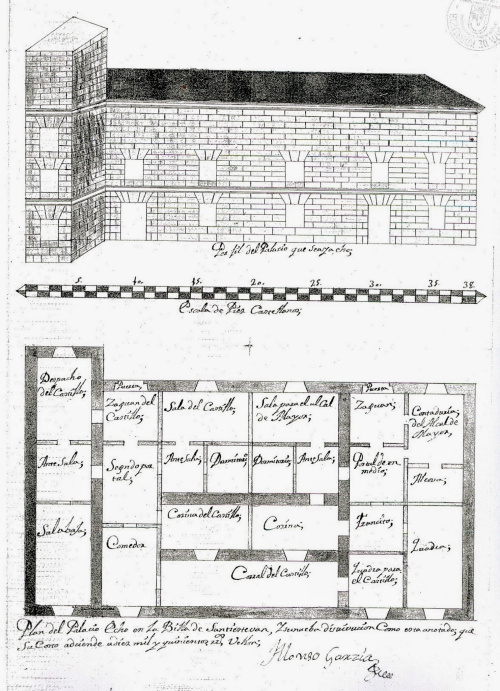 Perfil del Palacio que se aze ho;
5. 10. 15. 20. 25. 30. 35. 38.
Escala de Piez Castellanos
Despacho
del Castillo;
Puerta
Zaguan del
Castillo;
Sala del Castillo;
Sala para el Alcal
de Mayor,
Puerta
Zaguan;
Contaduria
del Alcalde
Mayor,
Ante Sala;
Segndo por
tal;
Ante Sala;
Dormitorio
Dormitorio
Ante Sala;
Portal de en
medio;
Alcova;
Sala baja;
Comedor
Cocina del Castillo;
Cocina;
Tranzito;
Quadra;
Corral del Castillo;
Quadra para
el Castillo;
Plan del Palacio Echo en la Billa de Santiestevan, Y nueba distribucion Como esta anotado; que
Su Coste adciende a diez mil y quinientos Rs Vellon;
Alonso Garzia